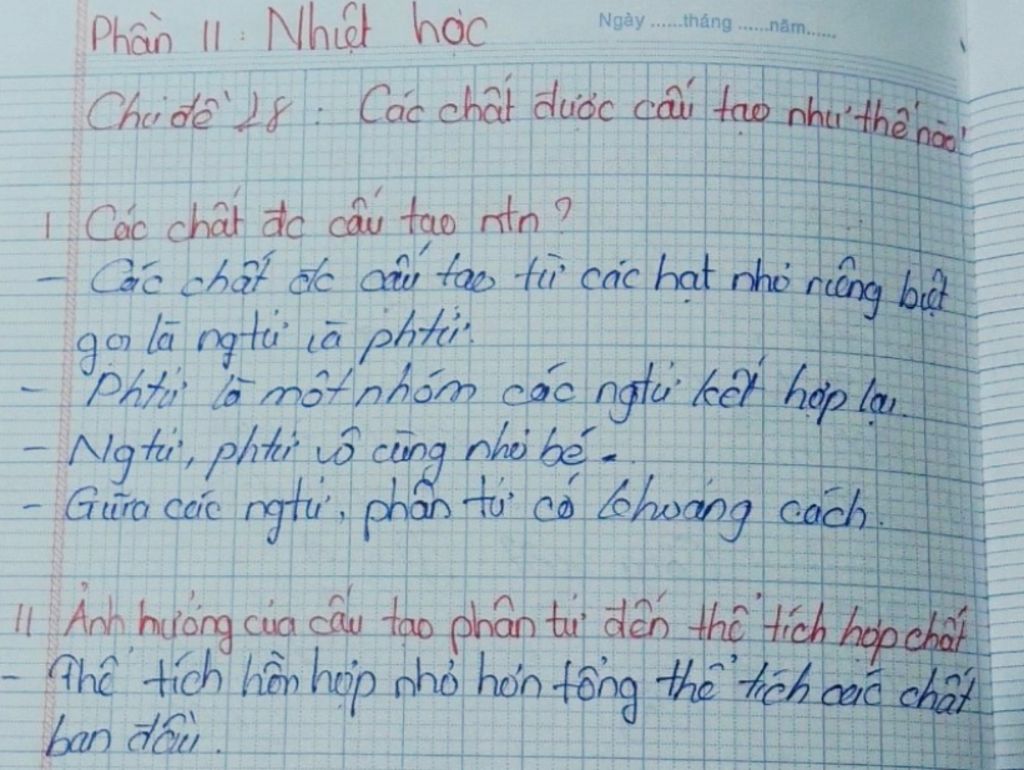 Ngày ......tháng ......năm......
Phần II : Nhiệt học
Chủ đề 28 : Các chất được cấu tạo như thế nào?
I Các chất đc cấu tạo ntn?
- Các chất đc cấu tạo từ các hạt nhỏ riêng biệt
gọi là ngtử và phtử.
- Phtử là một nhóm các ngtử kết hợp lại.
- Ngtử, phtử vô cùng nhỏ bé.
- Giữa các ngtử, phân tử có khoảng cách.
II Ảnh hưởng của cấu tạo phân tử đến thể tích hợp chất
- Thể tích hỗn hợp nhỏ hơn tổng thể tích các chất
ban đầu.